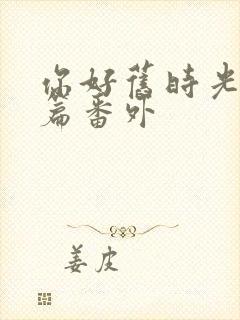 你好舊時光
篇番外
姜皮